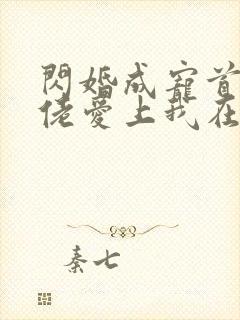 閃婚成寵首
佬愛上我在
秦七